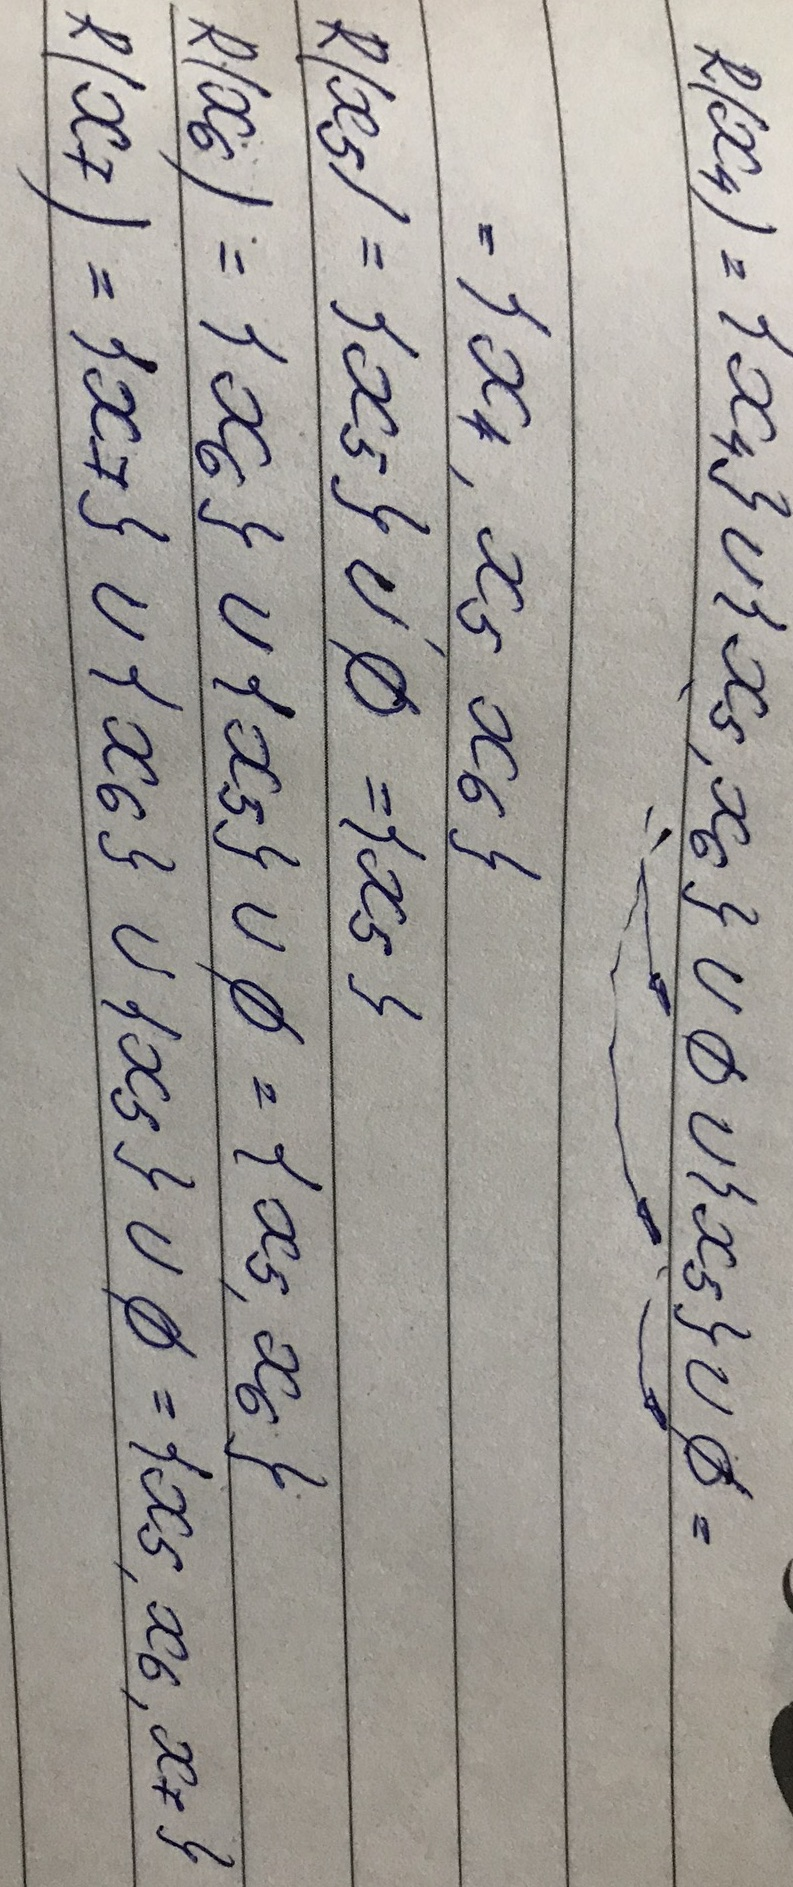 R(x₄) = {x₄} ∪ {x₅, x₆} ∪ ∅ ∪ {x₅} ∪ ∅ =
= {x₄, x₅ x₆}
R(x₅) = {x₅} ∪ ∅ = {x₅}
R(x₆) = {x₆} ∪ {x₅} ∪ ∅ = {x₅, x₆}
R(x₇) = {x₇} ∪ {x₆} ∪ {x₅} ∪ ∅ = {x₅, x₆, x₇}